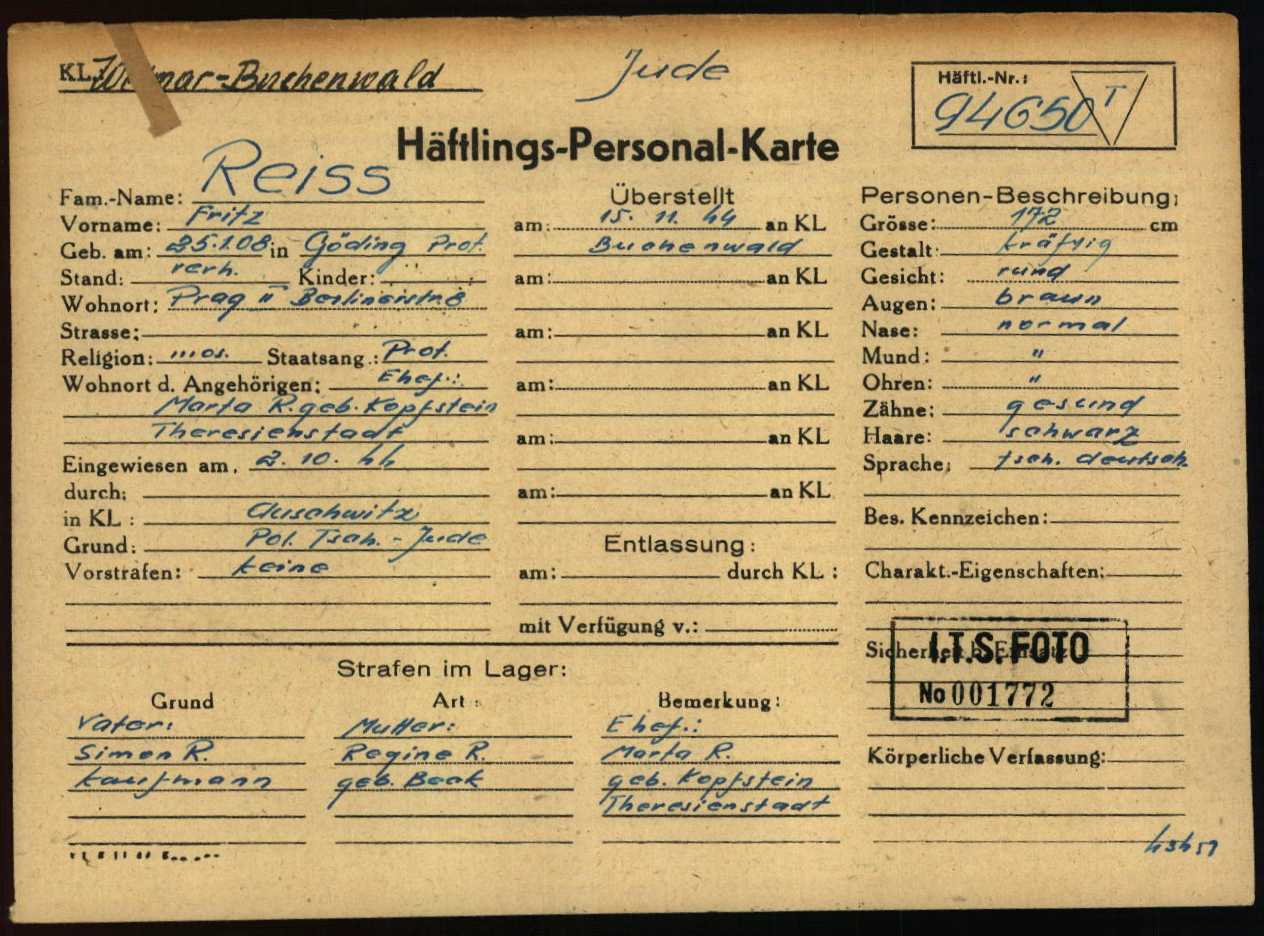 KL.: Weimar-Buchenwald
Jude
Häftl.-Nr.:
94650 T
Häftlings-Personal-Karte
Fam.-Name: Reiss
Vorname: Fritz
Geb. am: 25.1.08 in Göding Prot.
Stand: verh. Kinder: -
Wohnort: Prag II Berlinerstr. 8
Strasse:
Religion: mos. Staatsang.: Prot.
Wohnort d. Angehörigen: Ehef.:
Marta R. geb. Kopfstein
Theresienstadt
Eingewiesen am: 2.10.44
durch:
in KL: Auschwitz
Grund: Pol. Tsch. - Jude
Vorstrafen: keine
Überstellt
am: 15. 11. 44 an KL
Buchenwald
am: an KL
am: an KL
am: an KL
am: an KL
am: an KL
Entlassung:
am: durch KL:
mit Verfügung v.:
Personen-Beschreibung:
Grösse: 172 cm
Gestalt: kräftig
Gesicht: rund
Augen: braun
Nase: normal
Mund: "
Ohren: "
Zähne: gesund
Haare: schwarz
Sprache: tsch. deutsch.
Bes. Kennzeichen:
Charakt.-Eigenschaften:
Sicherheit b. Einsatz:
I.T.S. FOTO
No 001772
Körperliche Verfassung:
Strafen im Lager:
Grund Art: Bemerkung:
Vater: Mutter: Ehef.:
Simon R. Regine R. Marta R.
Kaufmann geb. Beck geb. Kopfstein
Theresienstadt